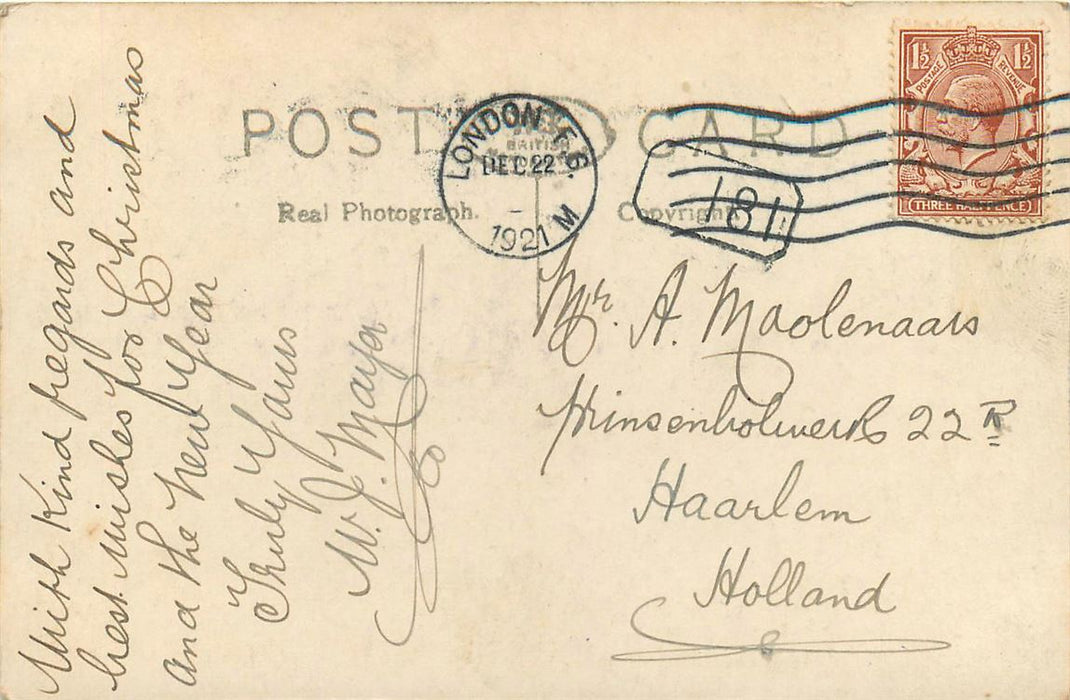 POST CARD
BRITISH
Real Photograph. Copyright.
LONDON. E.6.
DEC 22
1921 M
181
1½ 1½
POSTAGE REVENUE
THREE HALFPENCE
With Kind regards and
best wishes for Christmas
and the New Year
Truly Yours
W. J. Mayer
Mr. A. Moolenaars
Prinsenbolwerk 22 R
Haarlem
Holland